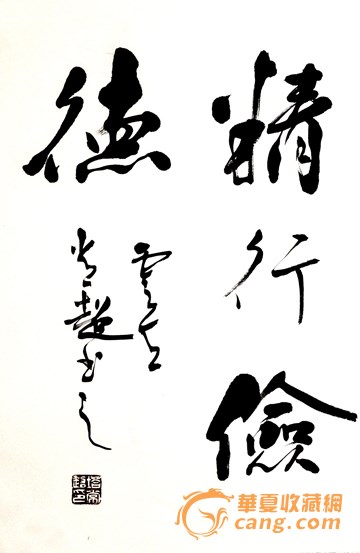 精行儉
德
超書之
華夏收藏網
cang.com